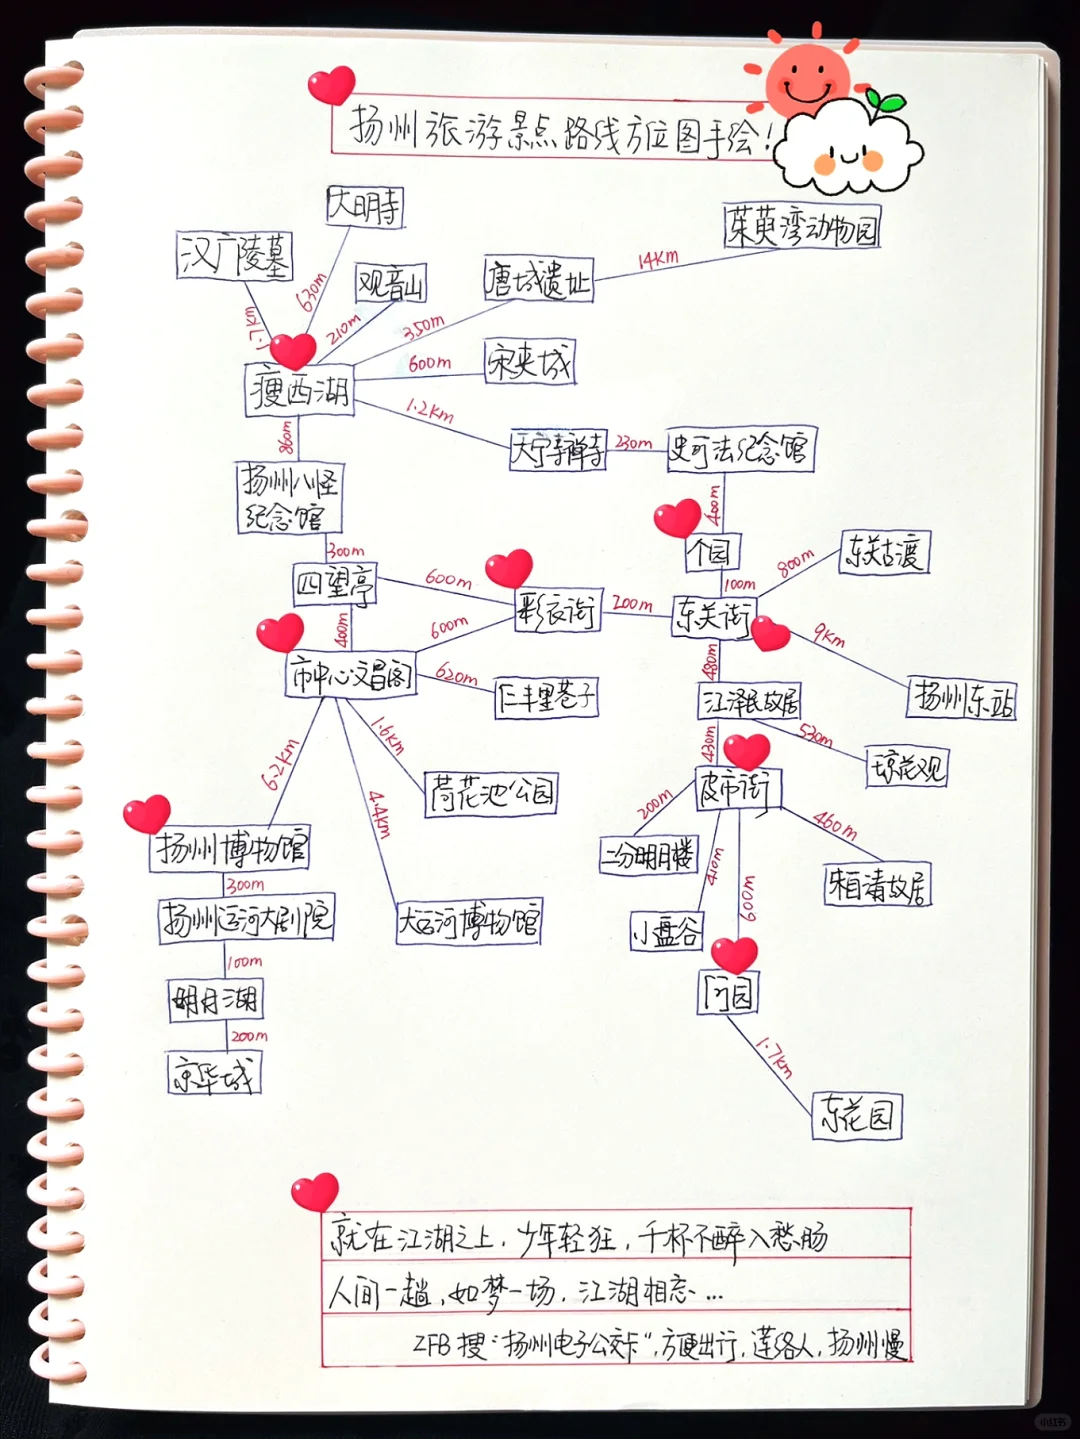 扬州旅游景点路线方位图手绘!
大明寺
茱萸湾动物园
汉广陵墓
观音山
唐城遗址
14Km
630m
1.7Km
210m
350m
宋夹城
600m
瘦西湖
1.2Km
860m
天宁寺禅寺
230m
史可法纪念馆
扬州八怪
纪念馆
400m
个园
东关古渡
300m
四望亭
600m
彩衣街
200m
100m
800m
东关街
400m
600m
9Km
市中心文昌阁
620m
仁丰里巷子
480m
江泽民故居
扬州东站
1.6Km
430m
530m
琼花观
6.2Km
荷花池公园
4.4Km
皮市街
200m
460m
扬州博物馆
二分明月楼
410m
朱自清故居
300m
600m
扬州运河大剧院
大运河博物馆
小盘谷
100m
明月湖
何园
200m
京华城
1.7Km
东花园
就在江湖之上,少年轻狂,千杯不醉入愁肠
人间一趟,如梦一场,江湖相忘...
ZFB搜“扬州电子公交卡”,方便出行,莲络人,扬州慢
小红书